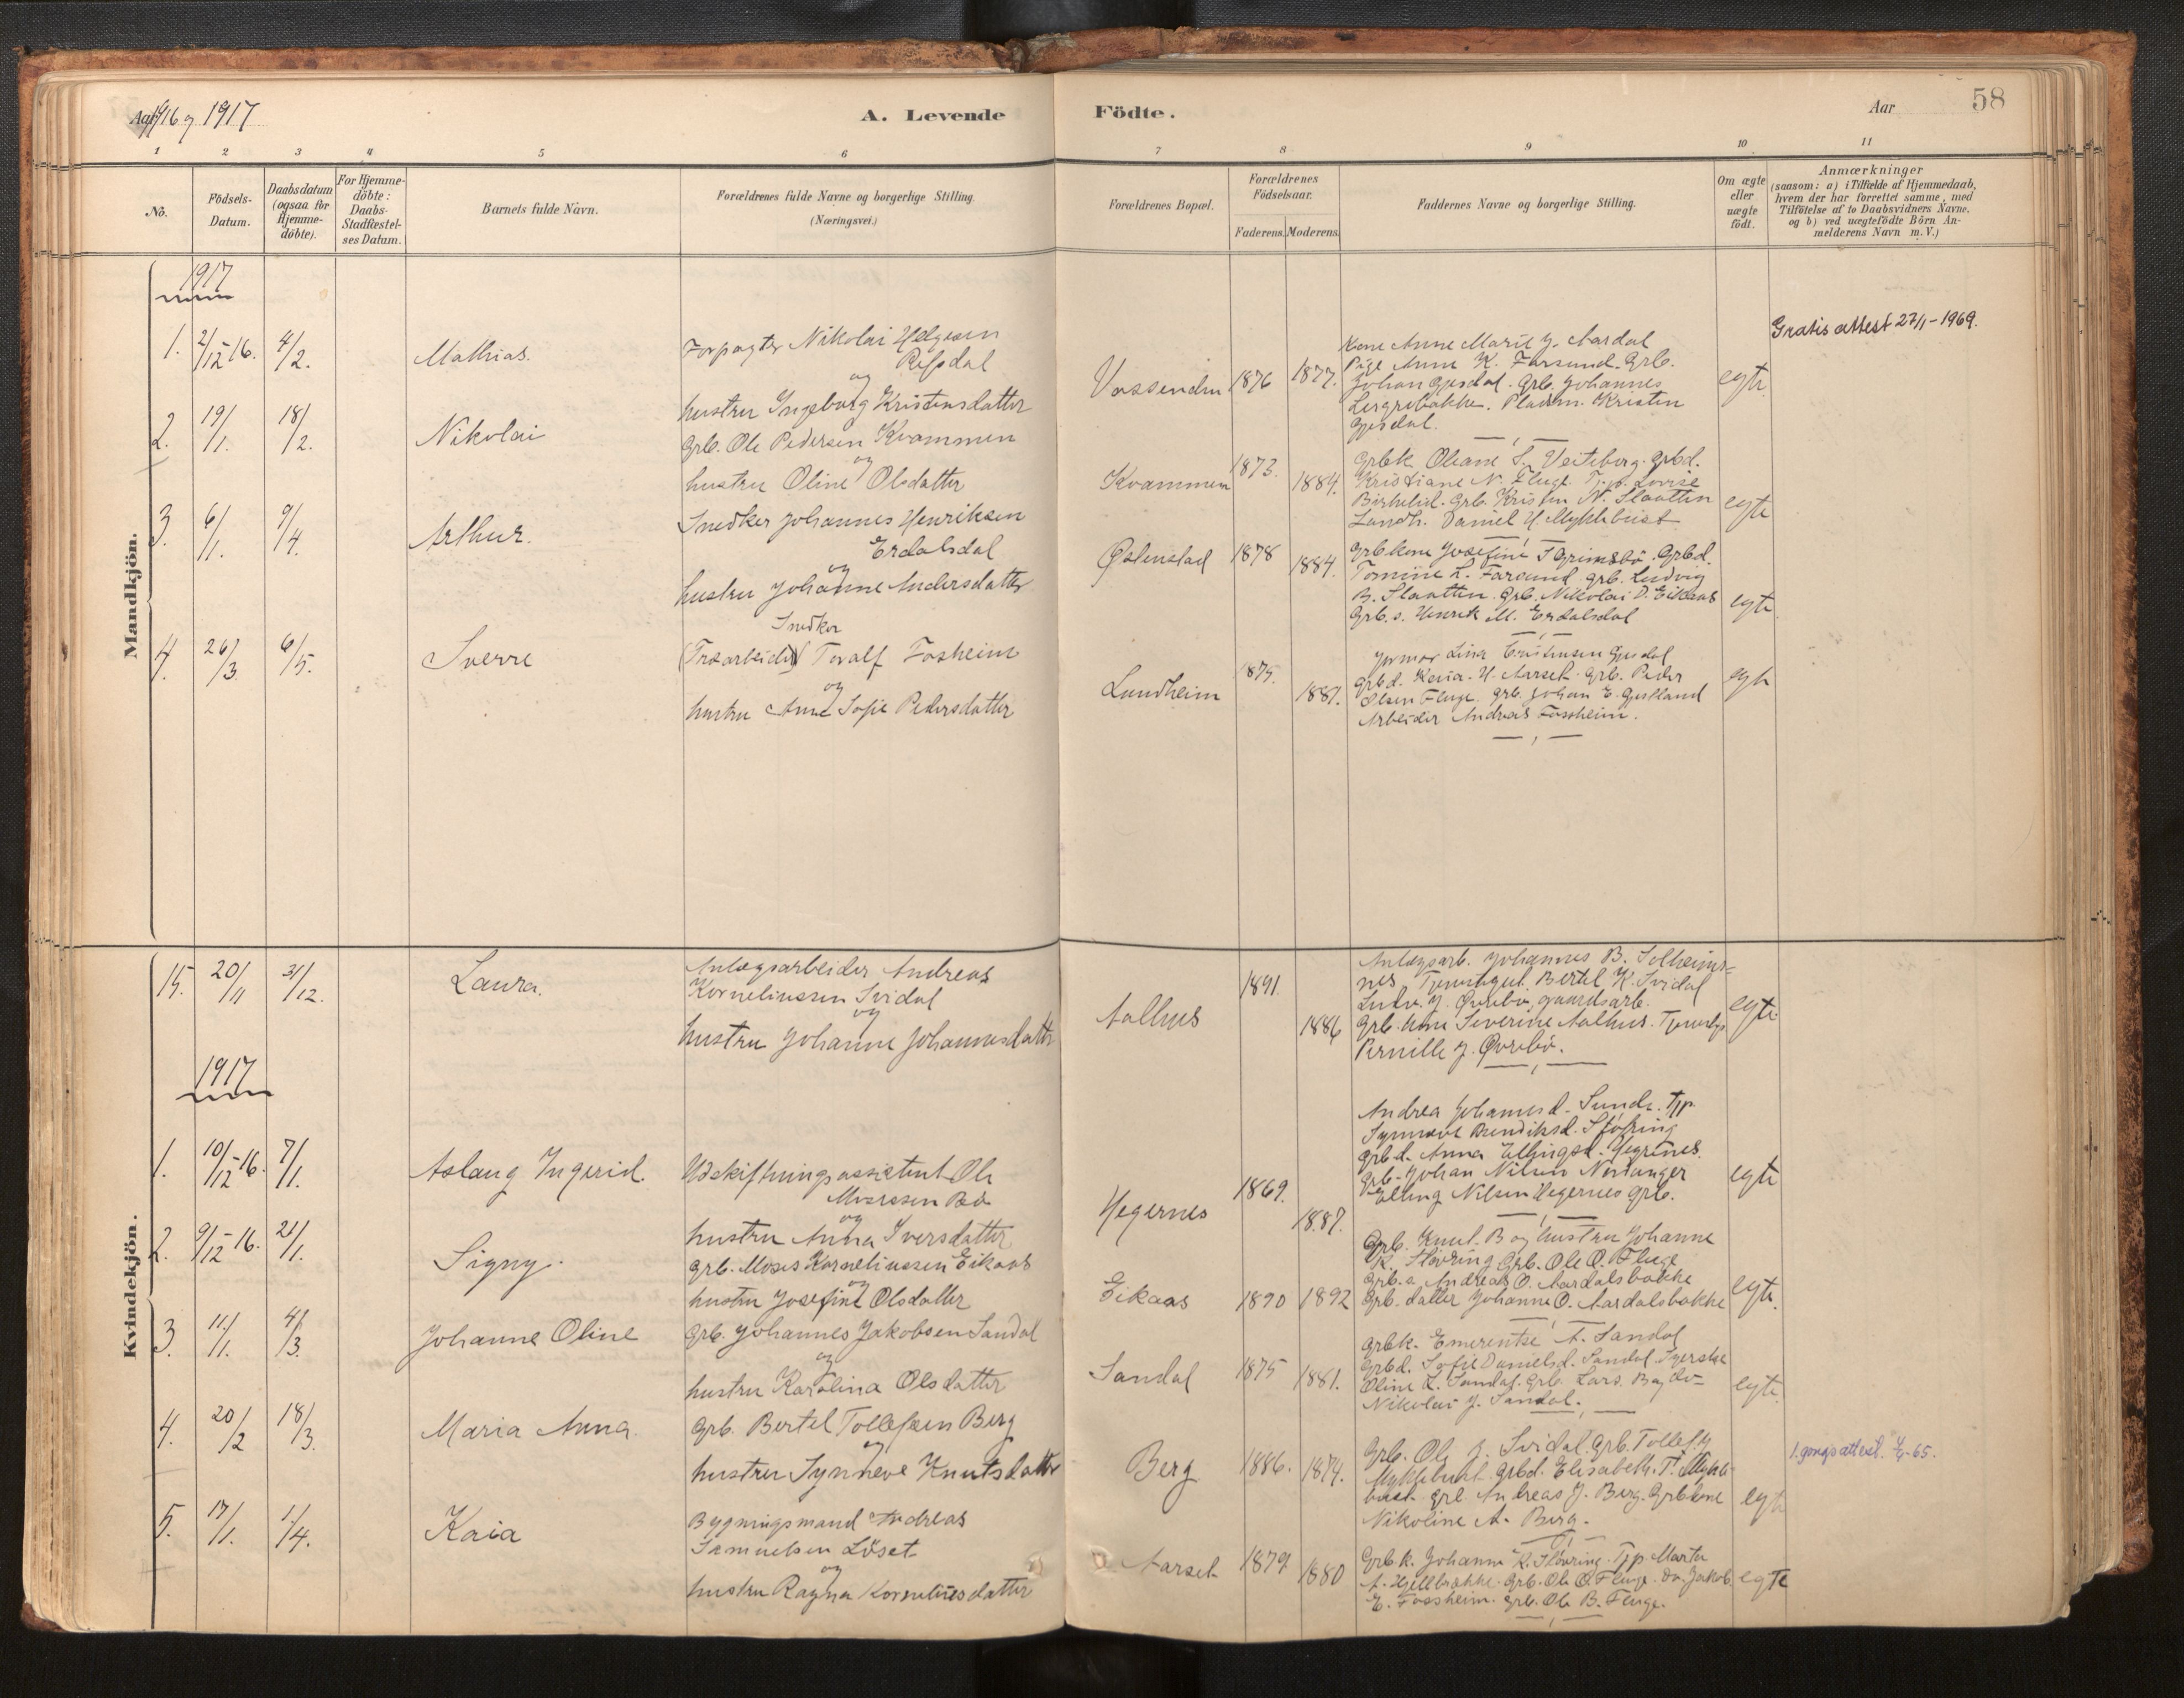 Aar 1916 og 1917
A. Levende
Födte.
Aar
58
1
2
3
4
5
6
7
8
9
10
11
No.
Födsels-
Datum.
Daabsdatum
(ogsaa for
Hjemme-
döbte).
For Hjemme-
döbte:
Daabs-
Stadfæstel-
ses Datum.
Barnets fulde Navn.
Forældrenes fulde Navne og borgerlige Stilling.
(Næringsvei.)
Forældrenes Bopæl.
Forældrenes
Födselsaar.
Faderens.
Moderens.
Faddernes Navne og borgerlige Stilling.
Om ægte
eller
uægte
födt.
Anmærkninger
(saasom: a) i Tilfælde af Hjemmedaab,
hvem der har forrettet samme, med
Tilföielse af to Daabsvidners Navne,
og b) ved uægtefödte Börn An-
melderens Navn m. V.)
Mandkjön.
1917
1. 2/12-16. 4/2. Mathias.
Forpagter Nikolai Helgesen
og
hustru Ingeborg Kristensdatter
Vassenden 1876 1877.
Kone Anne Marie J. Aardal
Pige Anne K. Farsund. Grb.
Johan Gjesdal. Grb. Johannes
Pladsm. Kristen
Gjesdal.
egte
Gratis attest 27/1-1969.
2. 19/1. 18/2. Nikolai
Grb. Ole Pedersen Kvammen
og
hustru Oline Olsdatter
Kvammen 1873. 1884.
Grbk. Oliane S. Veiteberg. Grbd.
Kristiane N. Fluge. Tjp. Lovise
Birkelid. Grb. Kristen N. Slaatten
Landh. Daniel H Myklebust
egte
3. 6/1. 9/4. Arthur.
Snedker Johannes Henriksen
Erdalsdal
og
hustru Johanne Andersdatter
Østenstad 1878 1884.
Grbkone Josefine T Grimsbö. Grbd.
Tomine L. Farsund. Grb. Ludvig
B. Slaatten. Grb. Nikolai D. Eikaas
Grb.s. Henrik M. Erdalsdal
egte
4. 26/3 6/5. Sverre
Snedker
(Træarbeider) Toralf Fosheim
og
hustru Anne Sofie Pedersdatter
Lundheim 1875. 1881.
Lina Kristensen Gjesdal
Grbd. H. Aarset. Grb. Peder
Olsen Fluge. Grb. Johan E. Gjelland
Arbeider Andreas Fossheim.
egte
Kvindekjön.
15. 20/11 31/12. Laura.
Anlægsarbeider Andreas
Korneliussen Svidal
og
hustru Johanne Johannesdatter
Aalhus 1891. 1886
Anlægsarb. Johannes B. Solheims-
nes. Bertel K. Svidal
Ludv. J. Øvrebø, gaardsarb.
Grb. kone Severine Aalhus.
Pernille J. Øvrebö.
egte
1917
1. 10/12-16. 7/1. Aslaug Ingerid.
Udskiftningsassistent Ole
og
hustru Anna Iversdatter
Hegernes 1869. 1887.
Andrea Johannesd. Sunde. Tjp.
Synneve Bendiksd. Støfring
Grbd. Anna Ellingsd. Hegrenes.
Grb. Johan Nilsen
Elling Nilsen Hegernes Grb.
egte
2. 9/12-16. 21/1. Signy.
Grb. Moses Korneliussen Eikaas
og
hustru Josefine Olsdatter
Eikaas 1890 1892
Grb. Knut B og hustru Johanne
K. Støvring Grb. Ole O. Fluge
Grb.s. Andreas O. Aardalsbakke
Grb. datter Johanne O. Aardalsbakke
egte.
3. 11/1. 4/3. Johanne Oline
Grb. Johannes Jakobsen Sandal
og
hustru Karolina Olsdatter
Sandal 1875 1881.
Grbk. Emerentse A. Sandal
Grbd. Sofie Danielsd. Sandal. Syerske
Oline L. Sandal. Grb. Lars
Nikolai J. Sandal.
egte
4. 20/2 18/3. Maria Anna.
Grb. Bertel Tollefsen Berg
og
hustru Synneve Knutsdatter
Berg 1886. 1874.
Grb. Ole J. Svidal. Grb. Tollef
Myklebust. Grbd. Elisabeth. T. Mykle-
bust. Grb. Andreas J. Berg. Grbkone
Nikoline A. Berg.
egte
1. gongs attest. -65.
5. 17/1. 1/4. Kaia
Bygningsmand Andreas
Samuelsen Löset
og
hustru Ragna Korneliusdatter
Aarset 1879 1880
Grb.k. Johanne K. Stövring. Tjp. Marta
A. Grb. Ole O. Fluge. do. Jakob
E. Fossheim. Grb. Ole B. Fluge.
egte